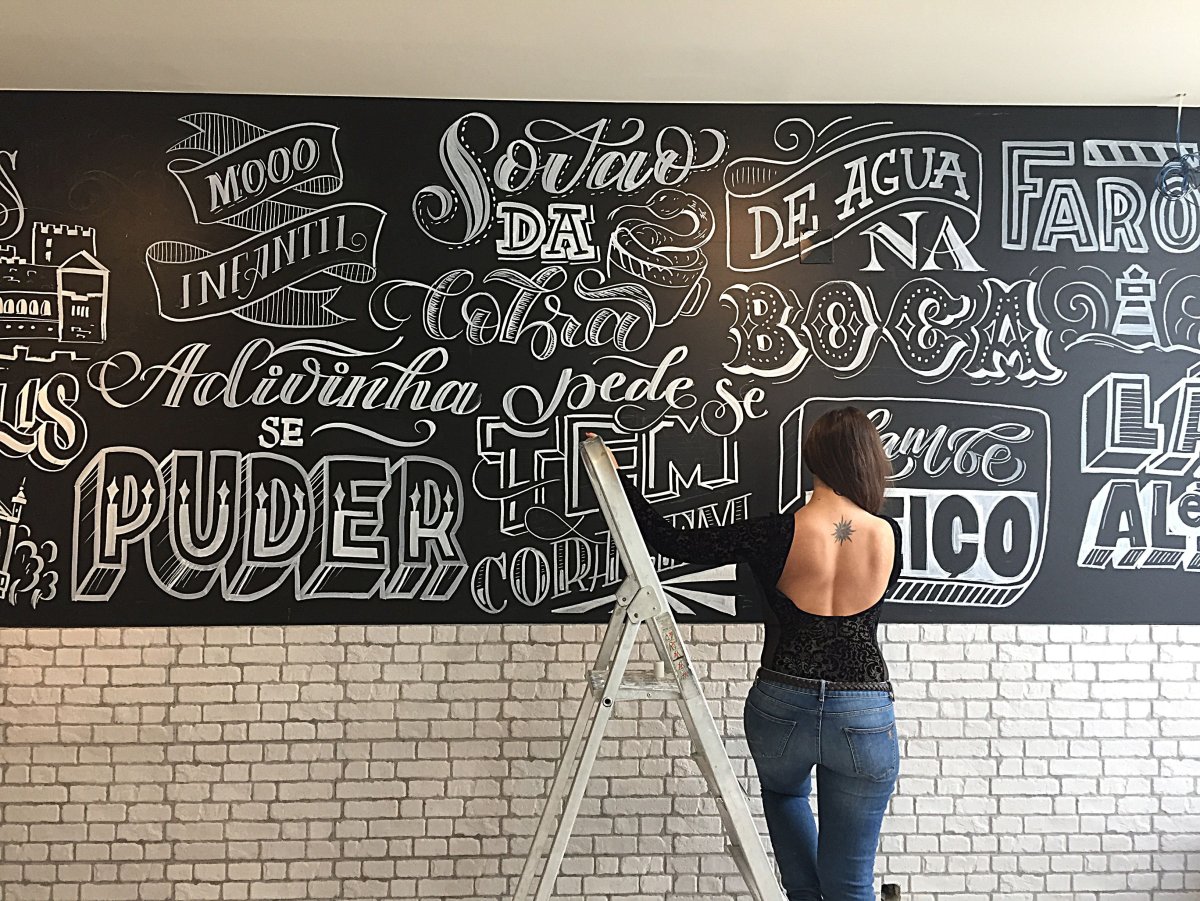 MOOO
INFANTIL
Sovaco
DA
Cobra
DE AGUA
NA
BOCA
FARO
Adivinha
SE
PUDER
pede se
TEM
ambe
TICO
LÁ
ALÉ